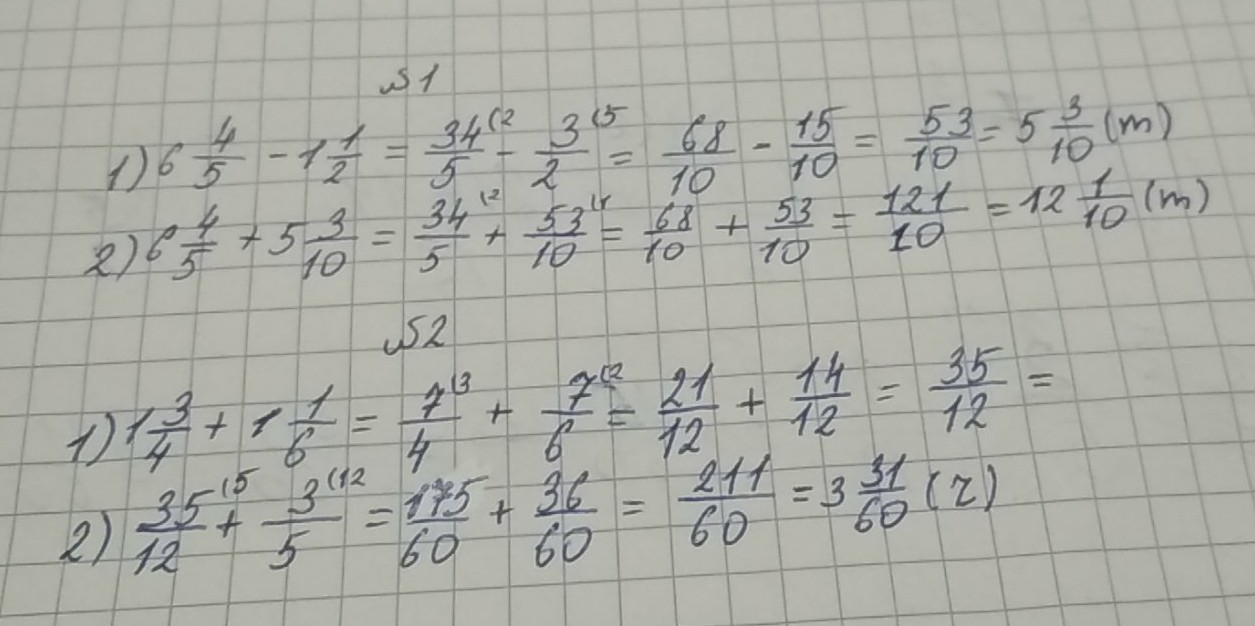 №1
1) 6 4/5 - 1 1/2 = 34/5 (2 - 3/2 (5 = 68/10 - 15/10 = 53/10 = 5 3/10 (т)
2) 6 4/5 + 5 3/10 = 34/5 (2 + 53/10 (1 = 68/10 + 53/10 = 121/10 = 12 1/10 (т)
№2
1) 1 3/4 + 1 1/6 = 7/4 (3 + 7/6 (2 = 21/12 + 14/12 = 35/12 =
2) 35/12 (5 + 3/5 (12 = 175/60 + 36/60 = 211/60 = 3 31/60 (г)